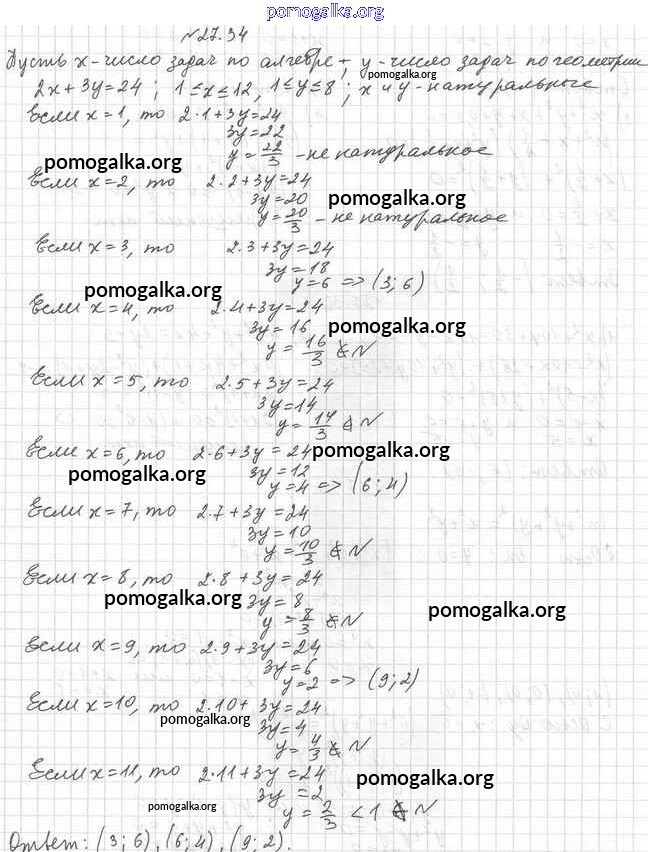 pomogalka.org
№27.34
Пусть x-число задач по алгебре, y-число задач по геометрии
pomogalka.org
2x+3y=24 ; 1≤x≤12, 1≤y≤8 ; x и y-натуральные
Если x=1, то 2·1+3y=24
3y=22
y=22/3 -не натуральное
pomogalka.org
Если x=2, то 2·2+3y=24
3y=20
pomogalka.org
y=20/3 - не натуральное
Если x=3, то 2·3+3y=24
3y=18
y=6 => (3; 6)
pomogalka.org
Если x=4, то 2·4+3y=24
3y=16
pomogalka.org
y=16/3 ∉ N
Если x=5, то 2·5+3y=24
3y=14
y=14/3 ∉ N
Если x=6, то 2·6+3y=24
pomogalka.org
pomogalka.org
3y=12
y=4 => (6; 4)
Если x=7, то 2·7+3y=24
3y=10
y=10/3 ∉ N
Если x=8, то 2·8+3y=24
pomogalka.org
3y=8
pomogalka.org
y=8/3 ∉ N
Если x=9, то 2·9+3y=24
3y=6
y=2 => (9; 2)
Если x=10, то 2·10+3y=24
pomogalka.org
3y=4
y=4/3 ∉ N
Если x=11, то 2·11+3y=24
pomogalka.org
3y=2
pomogalka.org
y=2/3 <1 ∉ N
Ответ: (3; 6), (6; 4), (9; 2).